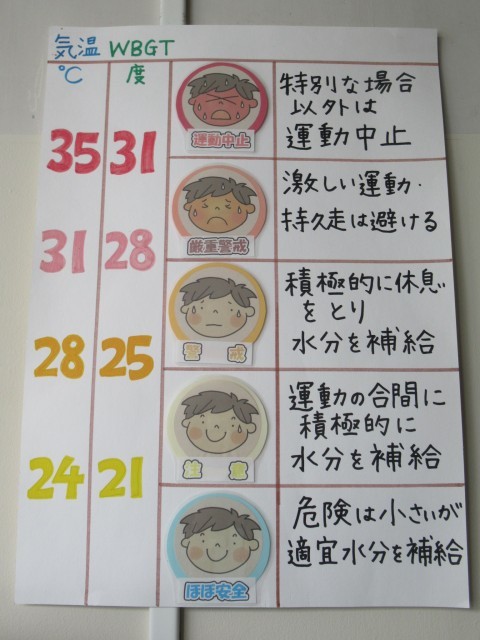 気温 WBGT
℃ 度
運動中止
特別な場合
以外は
運動中止
35 31
厳重警戒
激しい運動・
持久走は避ける
31 28
警戒
積極的に休息
をとり
水分を補給
28 25
注意
運動の合間に
積極的に
水分を補給
24 21
ほぼ安全
危険は小さいが
適宜水分を補給